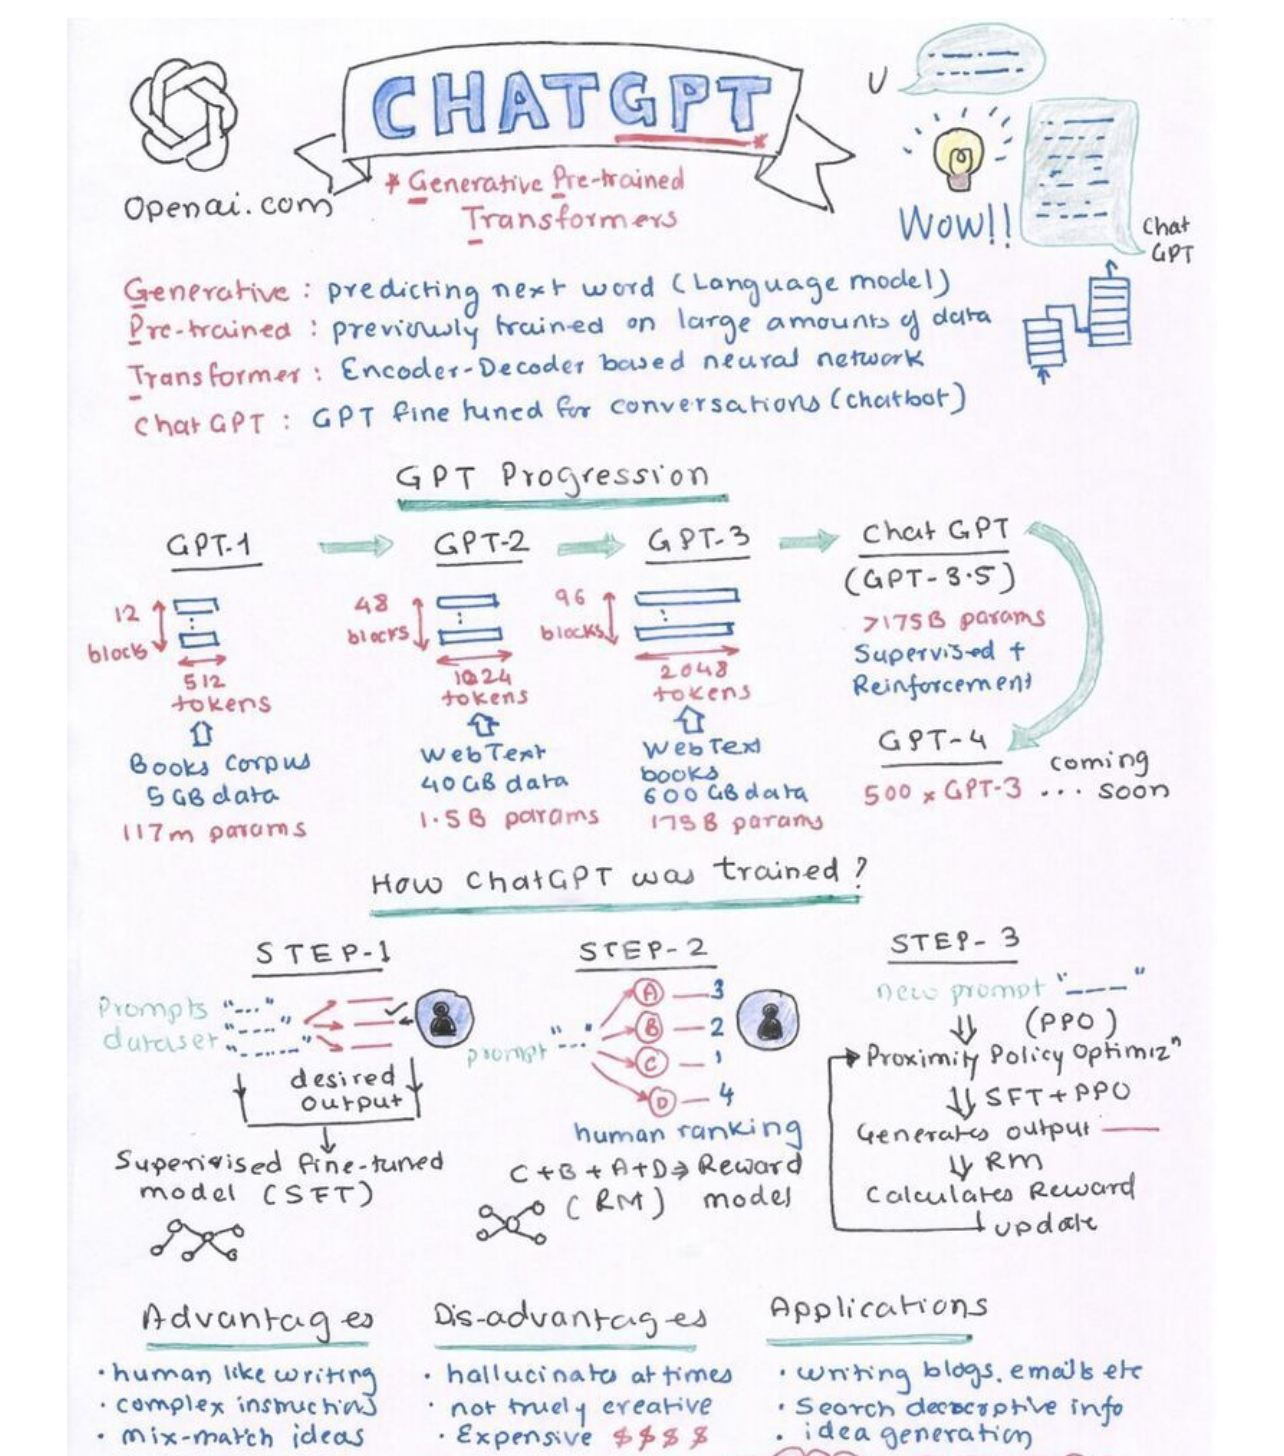 CHATGPT
U
Openai.com
* Generative Pre-trained
Transformers
Wow!!
Chat
GPT
Generative : predicting next word (Language model)
Pre-trained : previously trained on large amounts of data
Transformer : Encoder-Decoder based neural network
Chat GPT : GPT fine tuned for conversations (chatbot)
GPT Progression
GPT-1
12
blocks
512
tokens
Books Corpus
5 GB data
117m params
GPT-2
48
blocks
1024
tokens
WebText
40 GB data
1.5 B params
GPT-3
96
blocks
2048
tokens
WebText
books
600 GB data
175 B params
Chat GPT
(GPT-3.5)
>175 B params
Supervised +
Reinforcement
GPT-4
500 x GPT-3
coming
... soon
How ChatGPT was trained ?
STEP-1
Prompts
dataset
desired
output
Supervised fine-tuned
model (SFT)
STEP-2
prompt
A — 3
B — 2
C — 1
D — 4
human ranking
C+B+A+D⇒ Reward
(RM) model
STEP-3
new prompt "---"
(PPO)
Proximity Policy Optimizⁿ
SFT+PPO
Generates output
RM
Calculates Reward
update
Advantages
• human like writing
• complex instructions
• mix-match ideas
Dis-advantages
• hallucinates at times
• not truely creative
• Expensive $$$$
Applications
• writing blogs, emails etc
• Search descriptive info
• idea generation